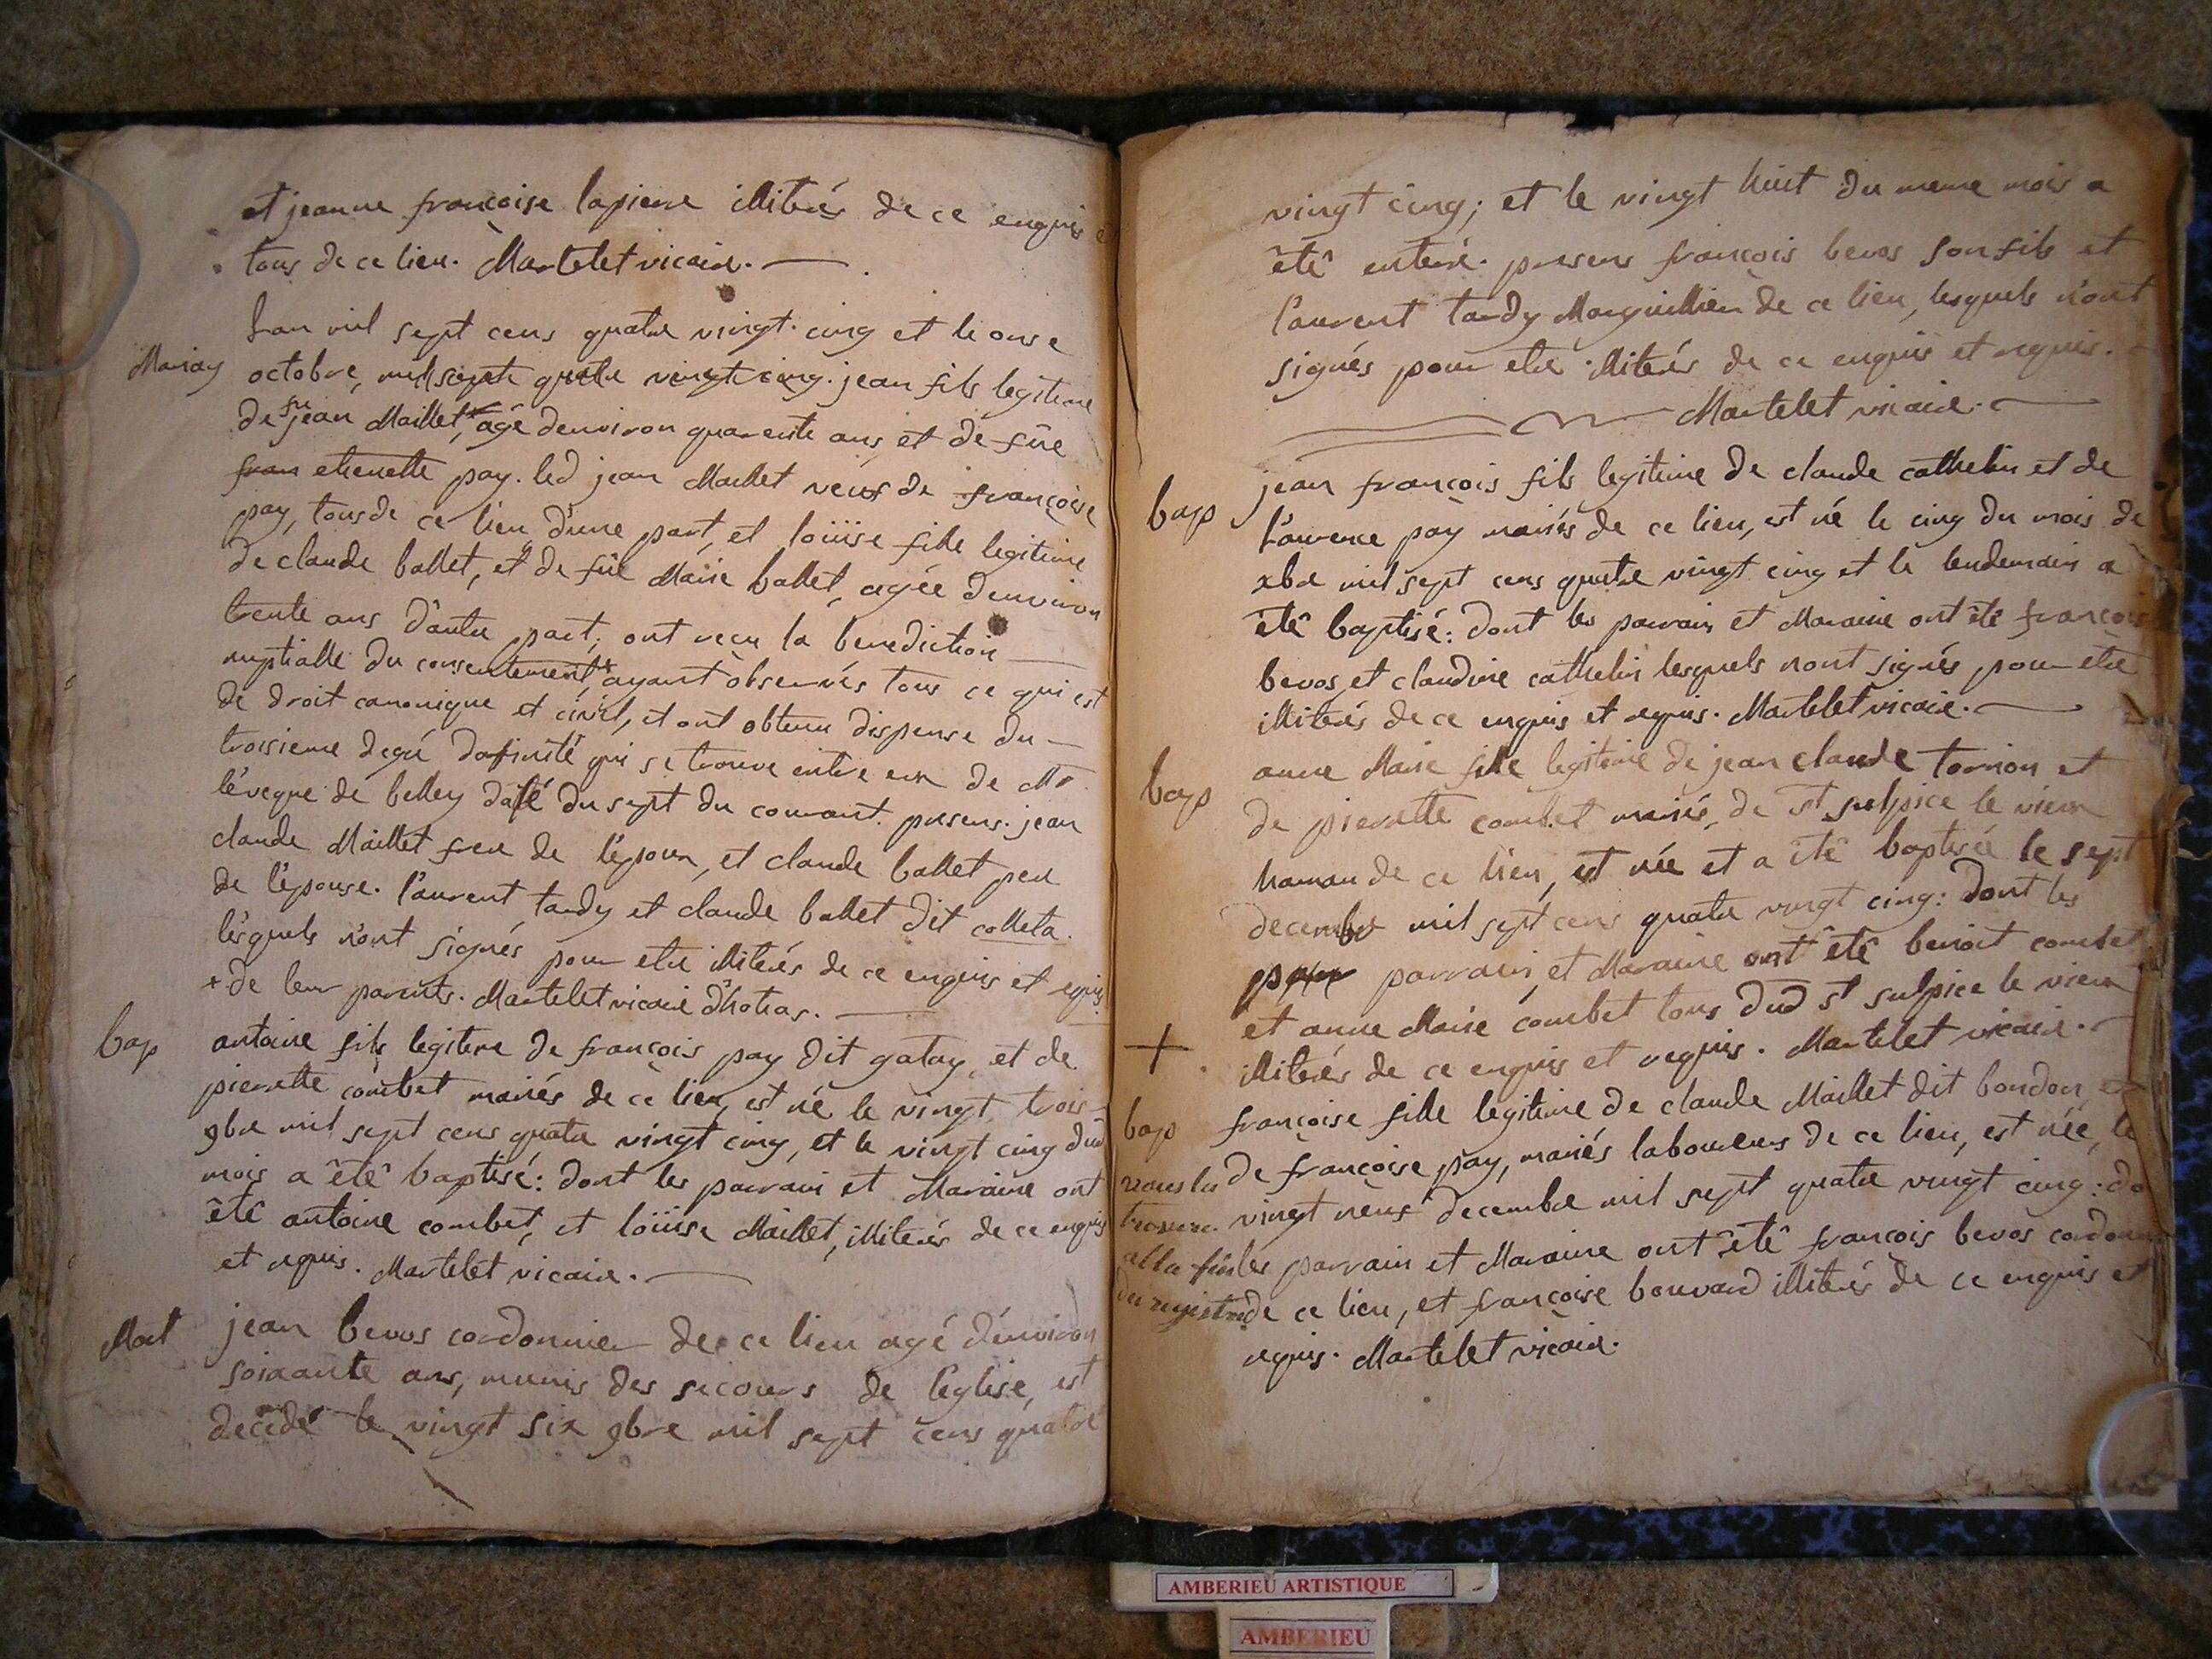 et jeanne françoise lapierre illiterés de ce enquis et
tous de ce lieu. Martelet vicaire.
Lan mil sept cens quatre vingt cinq et le onse
Mariag octobre, mil sept quatre vingt cinq. jean fils legitime
de fu jean Maillet, agé denviron quarente ans, et de füe
fran etienette pay. led jean Maillet veuf de françoise
pay, tous de ce lieu d'une part, et loüise fille legitime
de claude ballet, et de füe Marie ballet, agée d'environ
trente ans d'autre part; ont reçu la benediction
nuptialle du consentement + ayant observés tous ce qui est
de droit canonique et civil, et ont obtenu dispense du
troisieme degré dafinité qui se trouve entre eux de Mr
l'éveque de belley daté du sept du courant. presens. jean
claude Maillet frere de l'époux, et claude ballet pere
de l'épouse. l'aurent tardy et claude ballet dit colleta.
lesquels n'ont signés pour etre illiterés de ce enquis et requis.
+ de leur parents. Martelet vicaire d'hotias.
bap antoine fils legitime de françois pay dit gatay, et de
pierrette combet mariés de ce lieu, est né le vingt trois
9bre mil sept cens quatre vingt cinq, et le vingt cinq dud
mois a été baptisé: dont les parrain et Maraine ont
été antoine combet, et loüise Maillet, illiterés de ce enquis
et requis. Martelet vicaire.
Mort jean bevos cordonnier de ce lieu agé d'environ
soixante ans, munis des secours de l'église, est
decedé le vingt six 9bre mil sept cens quatre
vingt cinq; et le vingt huit du meme mois a
été enterré. presens françois bevos son fils et
l'aurent tardy Marguillier de ce lieu, lesquels n'ont
signés pour etre illiterés de ce enquis et requis.
Martelet vicaire.
bap jean françois fils legitime de claude cathelin et de
l'aurence pay mariés de ce lieu, est né le cinq du mois de
xbre mil sept cens quatre vingt cinq et le lendemain a
été baptisé: dont les parrain et Maraine ont été françois
bevos, et claudine cathelin lesquels nont signés pour etre
illiterés de ce enquis et requis. Martelet vicaire.
bap anne Marie fille legitime de jean claude tornion et
de pierrette combet mariés, de st sulpice le vieux
hamau de ce lieu, est née et a été baptisée le sept
decembre mil sept cens quatre vingt cinq: dont les
parrain, et Maraine ont été benoit combet
et anne Marie combet tous dud st sulpice le vieux
+ illiterés de ce enquis et requis. Martelet vicaire.
bap françoise fille legitime de claude Maillet dit bondon, et
de françoise pay, mariés laboureurs de ce lieu, est née, le
vingt neuf decembre mil sept quatre vingt cinq: do
les parrain et Maraine ont été françois bevos cordonnier
de ce lieu, et françoise bouvard illiterés de ce enquis et
requis. Martelet vicaire.
vous la
trouvre
alla fin
du registre
AMBERIEU ARTISTIQUE
AMBERIEU